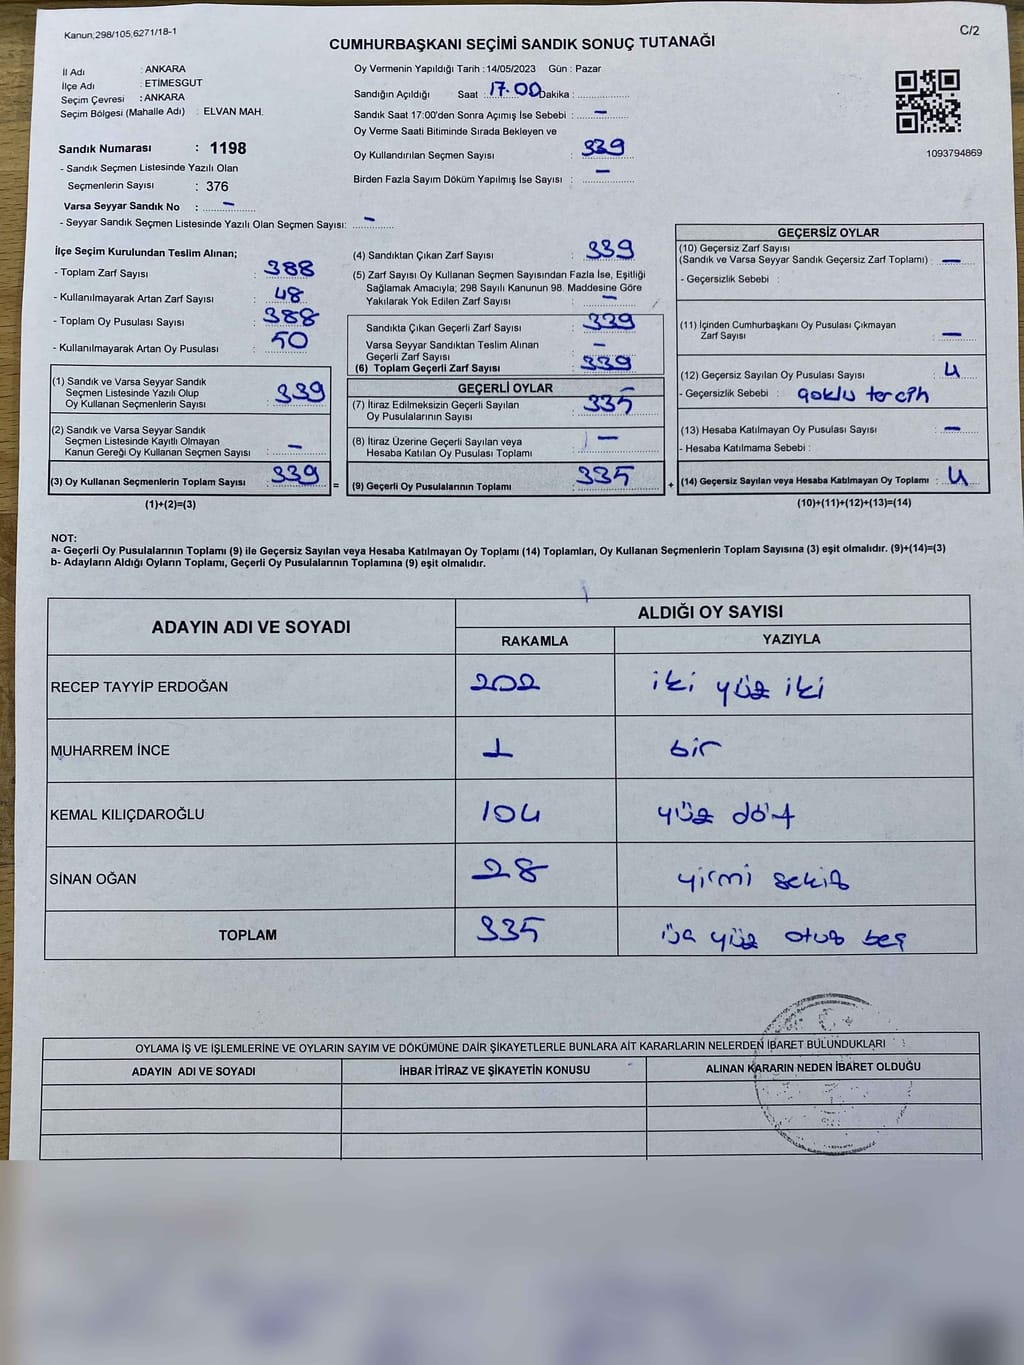 Kanun;298/105,6271/18-1
C/2
CUMHURBAŞKANI SEÇİMİ SANDIK SONUÇ TUTANAĞI
İl Adı : ANKARA
İlçe Adı : ETİMESGUT
Seçim Çevresi : ANKARA
Seçim Bölgesi (Mahalle Adı) : ELVAN MAH.
Sandık Numarası : 1198
- Sandık Seçmen Listesinde Yazılı Olan
Seçmenlerin Sayısı : 376
Varsa Seyyar Sandık No : -
- Seyyar Sandık Seçmen Listesinde Yazılı Olan Seçmen Sayısı: -
Oy Vermenin Yapıldığı Tarih :14/05/2023 Gün : Pazar
Sandığın Açıldığı Saat : 17.00 Dakika :
Sandık Saat 17:00'den Sonra Açımış İse Sebebi : -
Oy Verme Saati Bitiminde Sırada Bekleyen ve
Oy Kullandırılan Seçmen Sayısı : 339
Birden Fazla Sayım Döküm Yapılmış İse Sayısı : -
1093794869
İlçe Seçim Kurulundan Teslim Alınan;
- Toplam Zarf Sayısı : 388
- Kullanılmayarak Artan Zarf Sayısı : 48
- Toplam Oy Pusulası Sayısı : 388
- Kullanılmayarak Artan Oy Pusulası : 50
(1) Sandık ve Varsa Seyyar Sandık
Seçmen Listesinde Yazılı Olup
Oy Kullanan Seçmenlerin Sayısı : 339
(2) Sandık ve Varsa Seyyar Sandık
Seçmen Listesinde Kayıtlı Olmayan
Kanun Gereği Oy Kullanan Seçmen Sayısı : -
(3) Oy Kullanan Seçmenlerin Toplam Sayısı : 339
(1)+(2)=(3)
=
(4) Sandıktan Çıkan Zarf Sayısı : 339
(5) Zarf Sayısı Oy Kullanan Seçmen Sayısından Fazla İse, Eşitliği
Sağlamak Amacıyla; 298 Sayılı Kanunun 98. Maddesine Göre
Yakılarak Yok Edilen Zarf Sayısı : -
Sandıkta Çıkan Geçerli Zarf Sayısı : 339
Varsa Seyyar Sandıktan Teslim Alınan
Geçerli Zarf Sayısı : -
(6) Toplam Geçerli Zarf Sayısı : 339
GEÇERLİ OYLAR
(7) İtiraz Edilmeksizin Geçerli Sayılan
Oy Pusulalarının Sayısı : 335
(8) İtiraz Üzerine Geçerli Sayılan veya
Hesaba Katılan Oy Pusulası Toplamı : -
(9) Geçerli Oy Pusulalarının Toplamı : 335
+
GEÇERSİZ OYLAR
(10) Geçersiz Zarf Sayısı
(Sandık ve Varsa Seyyar Sandık Geçersiz Zarf Toplamı) : -
- Geçersizlik Sebebi :
(11) İçinden Cumhurbaşkanı Oy Pusulası Çıkmayan
Zarf Sayısı : -
(12) Geçersiz Sayılan Oy Pusulası Sayısı : 4
- Geçersizlik Sebebi : çoklu tercih
(13) Hesaba Katılmayan Oy Pusulası Sayısı : -
- Hesaba Katılmama Sebebi :
(14) Geçersiz Sayılan veya Hesaba Katılmayan Oy Toplamı : 4
(10)+(11)+(12)+(13)=(14)
NOT:
a- Geçerli Oy Pusulalarının Toplamı (9) ile Geçersiz Sayılan veya Hesaba Katılmayan Oy Toplamı (14) Toplamları, Oy Kullanan Seçmenlerin Toplam Sayısına (3) eşit olmalıdır. (9)+(14)=(3)
b- Adayların Aldığı Oyların Toplamı, Geçerli Oy Pusulalarının Toplamına (9) eşit olmalıdır.
ADAYIN ADI VE SOYADI ALDIĞI OY SAYISI
RAKAMLA YAZIYLA
RECEP TAYYİP ERDOĞAN 202 iki yüz iki
MUHARREM İNCE 1 bir
KEMAL KILIÇDAROĞLU 104 yüz dört
SİNAN OĞAN 28 yirmi sekiz
TOPLAM 335 üç yüz otuz beş
OYLAMA İŞ VE İŞLEMLERİNE VE OYLARIN SAYIM VE DÖKÜMÜNE DAİR ŞİKAYETLERLE BUNLARA AİT KARARLARIN NELERDEN İBARET BULUNDUKLARI
ADAYIN ADI VE SOYADI İHBAR İTİRAZ VE ŞİKAYETİN KONUSU ALINAN KARARIN NEDEN İBARET OLDUĞU